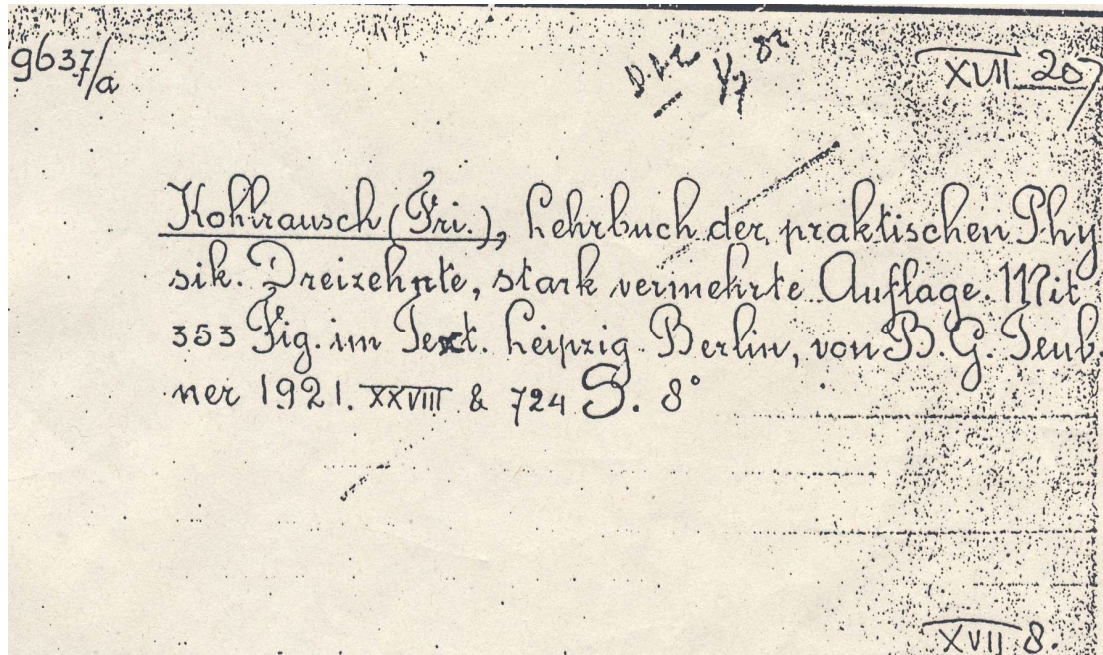 9637/a
XVII 20
Kohlrausch (Fri.), Lehrbuch der praktischen Phy
sik. Dreizehnte, stark vermehrte Auflage. Mit
353 Fig. im Text. Leipzig Berlin, von B. G. Teub.
ner 1921. XXVIII & 724 S. 8°
XVII 8.